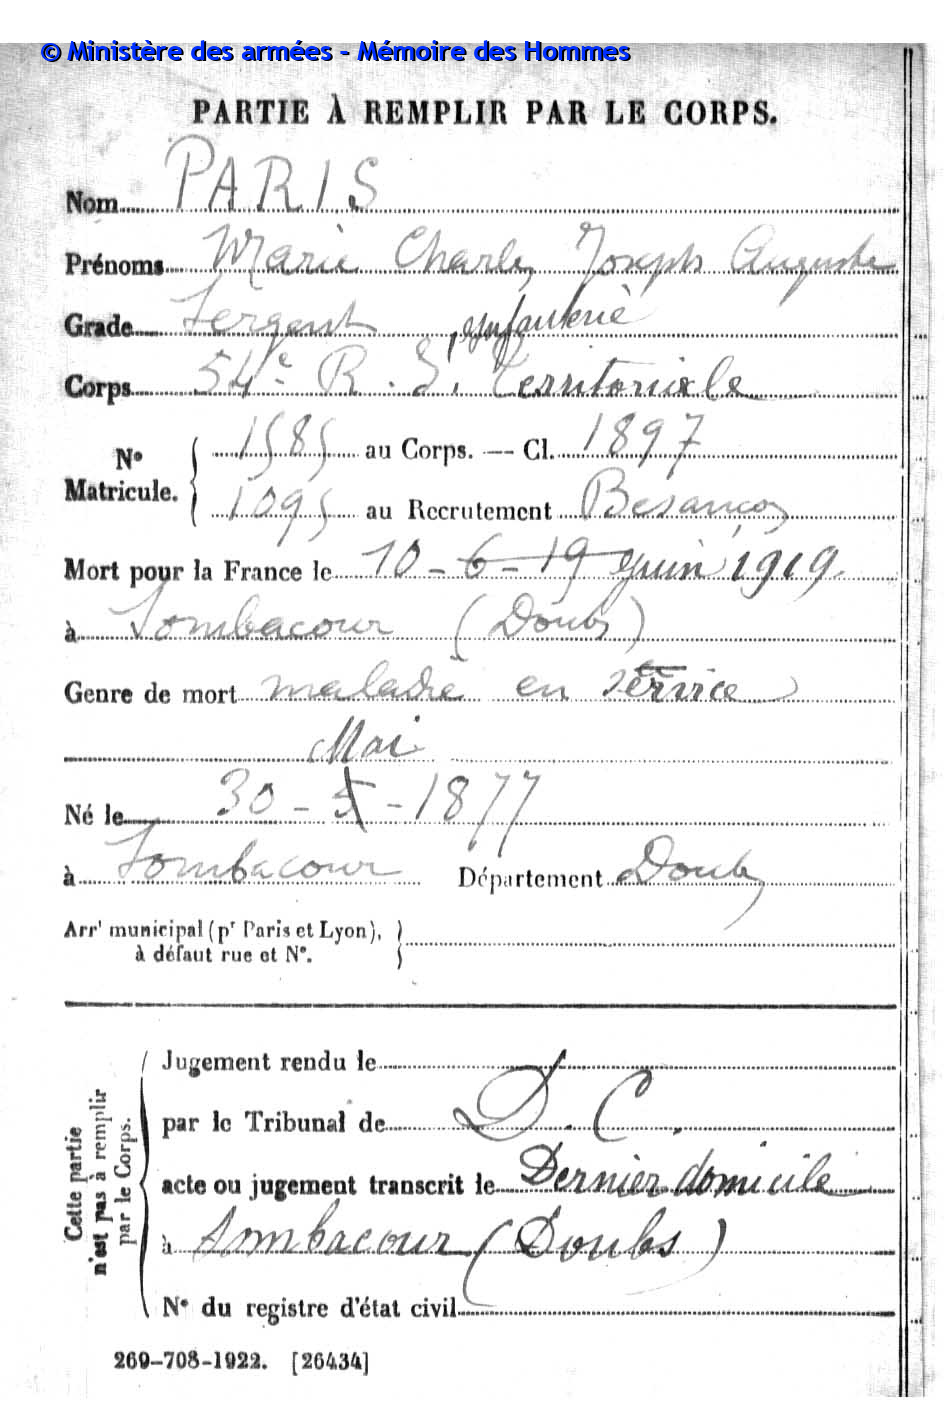 © Ministère des armées - Mémoire des Hommes
PARTIE À REMPLIR PAR LE CORPS.
Nom PARIS
Prénoms Marie Charles Joseph Auguste
Grade Sergent
Corps 54e R. I. Territoriale
d'infanterie
N° Matricule. 1585 au Corps. — Cl. 1897
1095 au Recrutement Besançon
Mort pour la France le 10 - 6 - 19 juin 1919.
à Sombacour (Doubs)
Genre de mort maladie en service
Mai
Né le 30 - 5 - 1877
à Sombacour Département Doubs
Arrt municipal (pr Paris et Lyon),
à défaut rue et N°.
Cette partie
n'est pas à remplir
par le Corps.
Jugement rendu le
par le Tribunal de D. C.
acte ou jugement transcrit le Dernier domicile
à Sombacour (Doubs)
N° du registre d'état civil
269-708-1922. [26434]